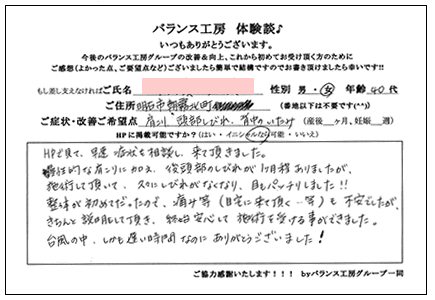 バランス工房 体験談♪
いつもありがとうございます。
今後のバランス工房グループの改善&向上、これから初めてお受け頂く方のために
ご感想(よかった点、ご要望点など)ございましたら簡単で結構ですのでお書き頂けましたら幸いです!!
もし差し支えなければご氏名 性別 男・女 年齢 40代
ご住所 明石市朝霧北町 (番地以下は不要です(^^))
ご症状・改善ご希望点 肩こり、頭部しびれ、背中のいたみ (産後 ヶ月、妊娠 週)
HPに掲載可能ですか?(はい・イニシャルなら可能・いいえ)
HPを見て、早速 症状を相談し、来て頂きました。
慢性的な肩こりに加え、後頭部のしびれが1ヶ月程ありましたが、
施術して頂いて、スグにしびれがなくなり、目もパッチリしました!!
整体が初めてだったので、痛み等(自宅に来て頂く…等)も不安でしたが、
きちんと説明して頂き、終始安心して施術を受ける事ができました。
台風の中、しかも遅い時間なのにありがとうございました!
ご協力感謝いたします!!! byバランス工房グループ一同